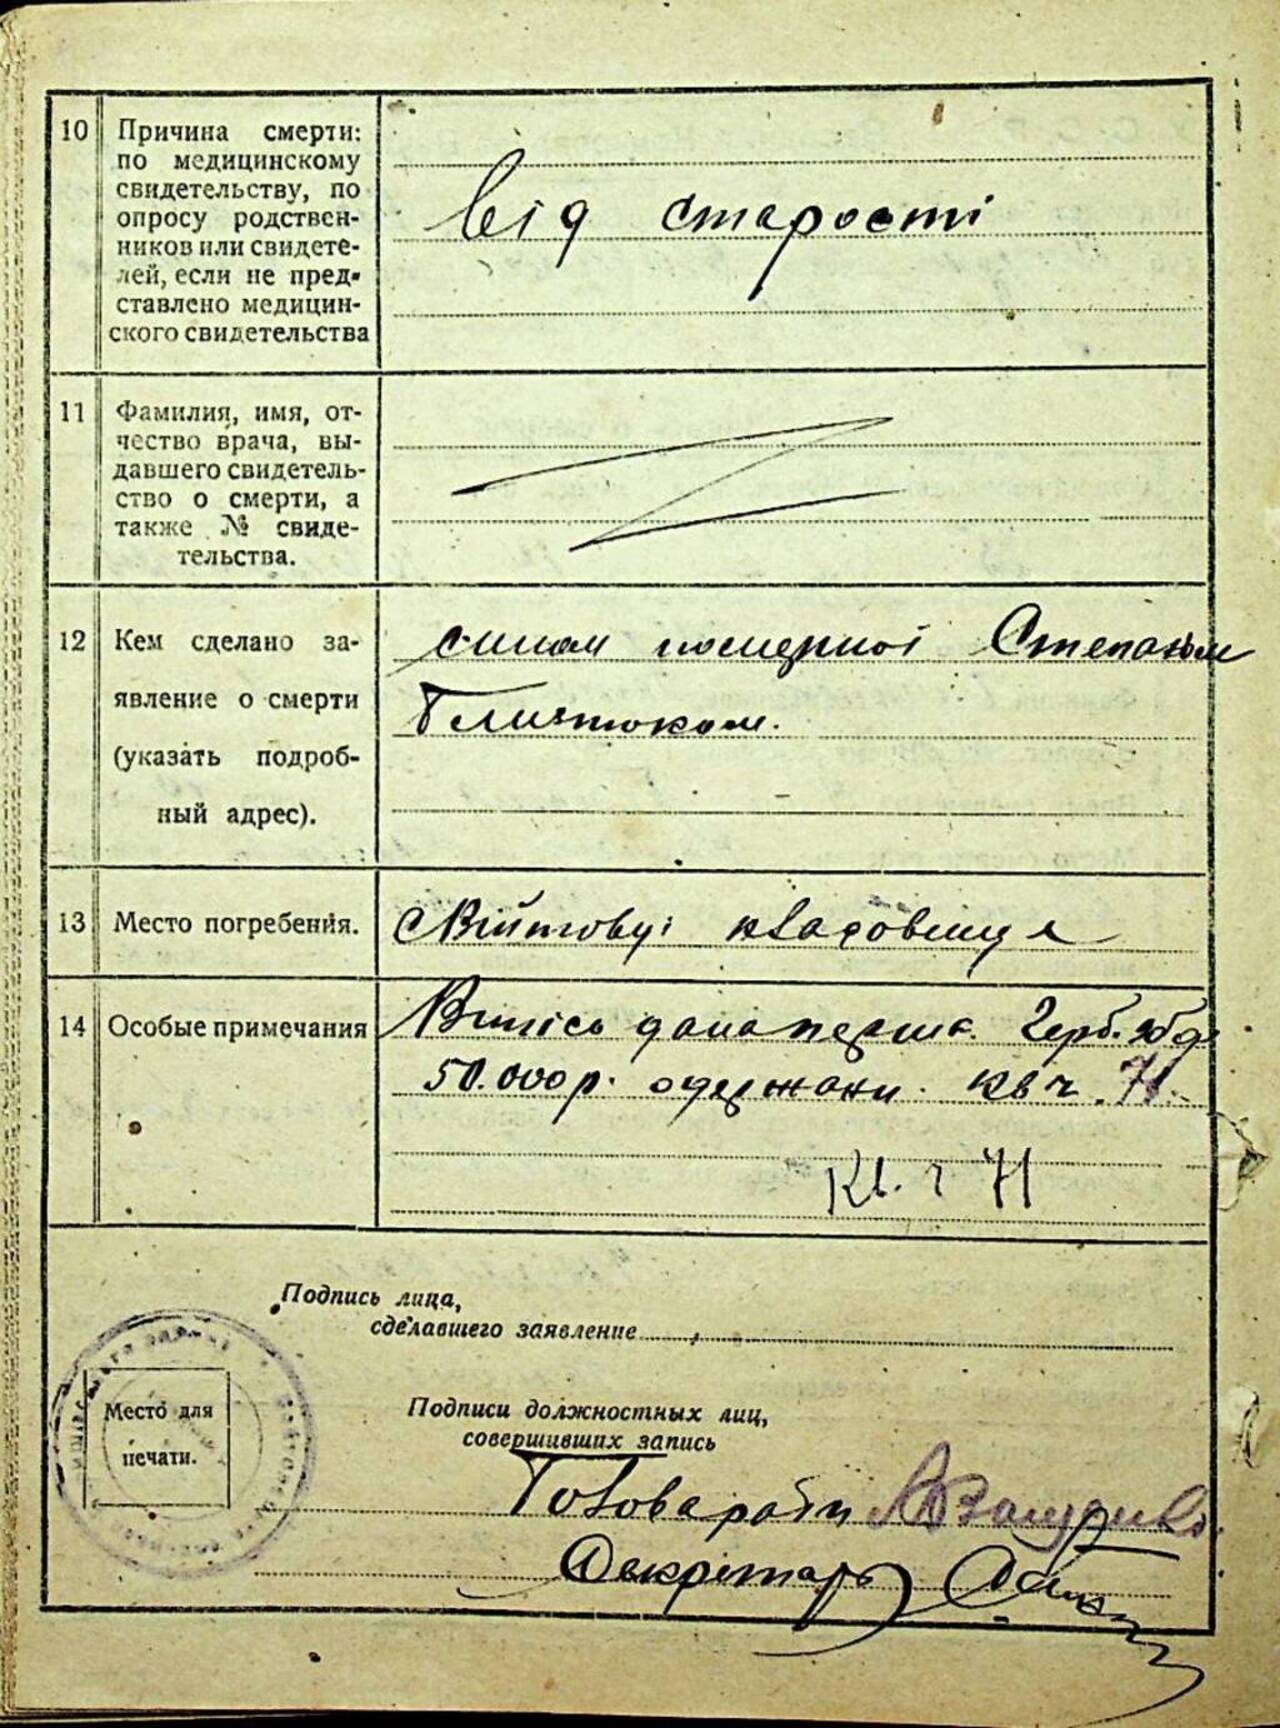 10 Причина смерти:
по медицинскому
свидетельству, по
опросу родствен-
ников или свидете-
лей, если не пред-
ставлено медицин-
ского свидетельства
від старості
11 Фамилия, имя, от-
чество врача, вы-
давшего свидетель-
ство о смерти, а
также № свиде-
тельства.
12 Кем сделано за-
явление о смерти
(указать подроб-
ный адрес).
сином померної Степаном
13 Место погребения.
14 Особые примечания
Випісь дана перша. Герб. зб
50.000 р. одержани. кв ч. 71.
Кв. ч 71
Подпись лица,
сделавшего заявление
Место для
печати.
Подписи должностных лиц,
совершивших запись
Голова ради
Секретарь